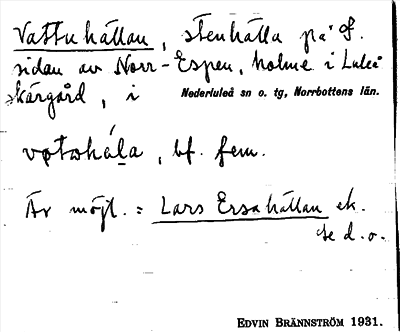 Vattuhällan, stenhälla på ö.
sidan av Norr-Espen, holme i Luleå
skärgård, i Nederluleå sn o. tg, Norrbottens län.
bf. fem.
Är möjl. = Lars Ersahällan ek.
se d. o.
EDVIN BRÄNNSTRÖM 1931.